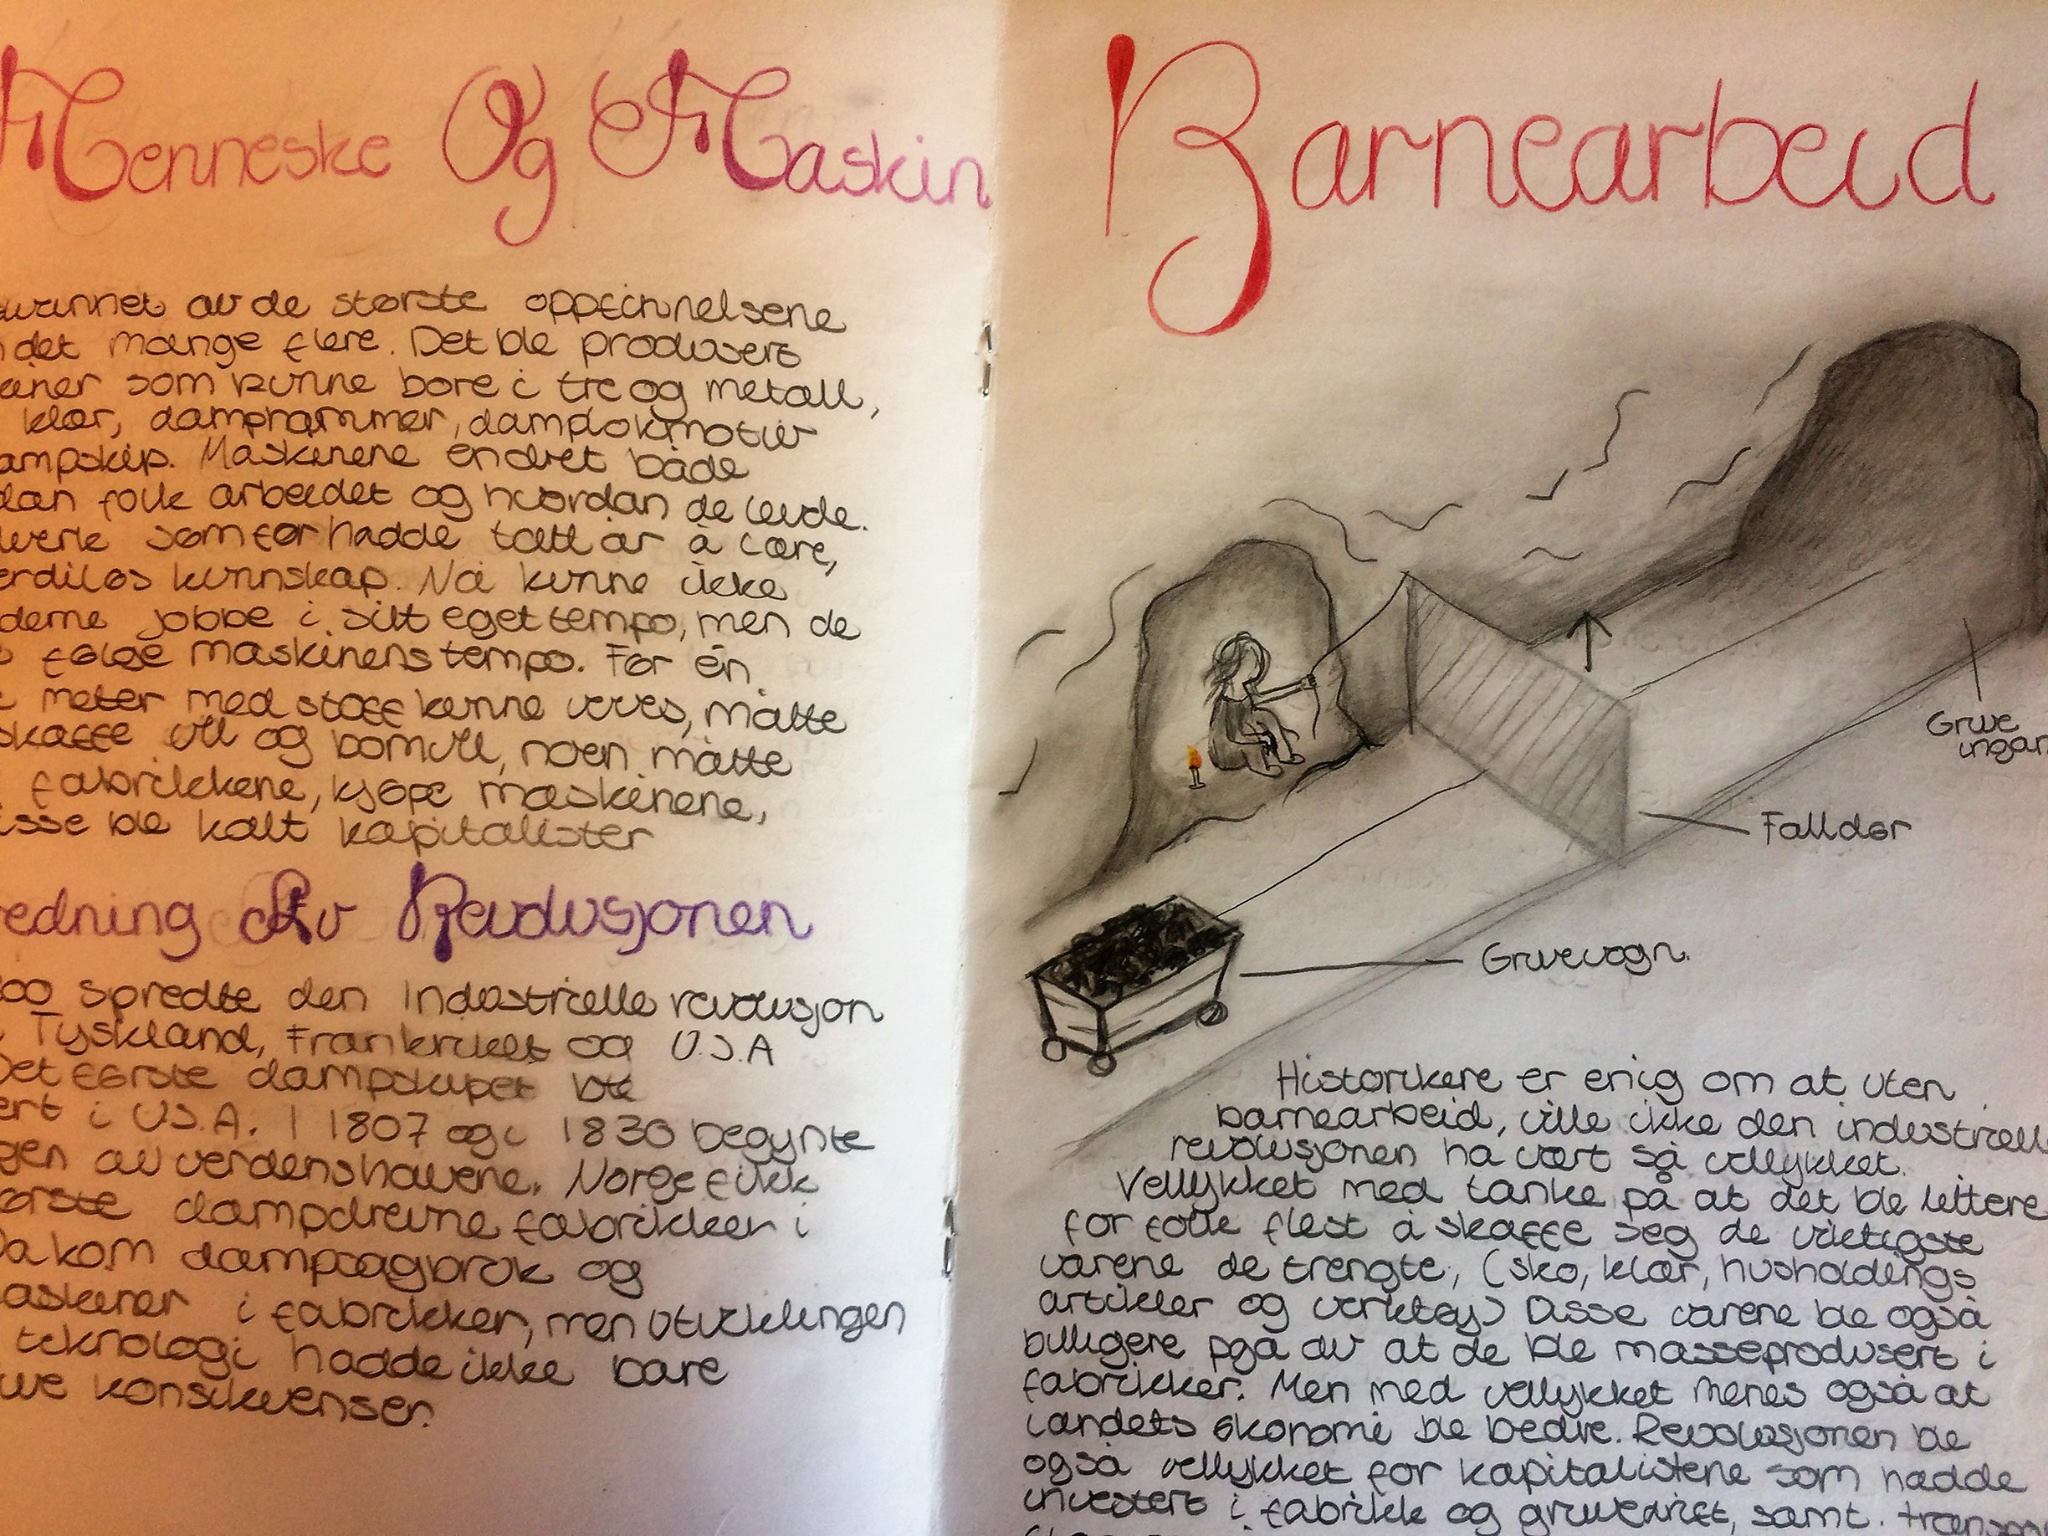 Menneske Og Maskin
av de største oppfinnelsene
det mange flere. Det ble produsert
som kunne bore i tre og metall,
klær, damphammer, damplokomotiv
ampskip. Maskinene endret både
dan folk arbeidet og hvordan de levde.
som før hadde tatt år å lære,
erdiløs kunnskap. Nå kunne ikke
derne jobbe i sitt eget tempo, men de
følge maskinens tempo. For én
meter med stoff kunne veves, måtte
skaffe ull og bomull, noen måtte
fabrikkene, kjøpe maskinene,
isse ble kalt kapitalister
redning Av Revolusjonen
800 spredte den Industrielle revolusjon
Tyskland, Frankriket og U.S.A
Det første dampskipet ble
ert i U.S.A. I 1807 og i 1830 begynte
gen av verdenshavene. Norge fikk
ørste dampdrevne fabrikker i
Da kom dampsagbruk og
askiner i fabrikker, men utviklingen
teknologi hadde ikke bare
ive konsikvenser.
Barnearbeid
Gruve
ingan
Falldør
Gruvevogn.
Historikere er enig om at uten
barnearbeid, ville ikke den industriell
revolusjonen ha vært så vellykket.
Vellykket med tanke på at det ble lettere
for folk flest å skaffe seg de viktigste
varene de trengte, (sko, klær, husholdnings
artikler og verktøy) Disse varene ble også
billigere pga av at de ble masseprodusert i
fabrikker. Men med vellykket menes også at
landets økonomi ble bedre. Revolusjonen ble
også vellykket for kapitalistene som hadde
investert i fabrikk og gruvedrift, samt. transpo